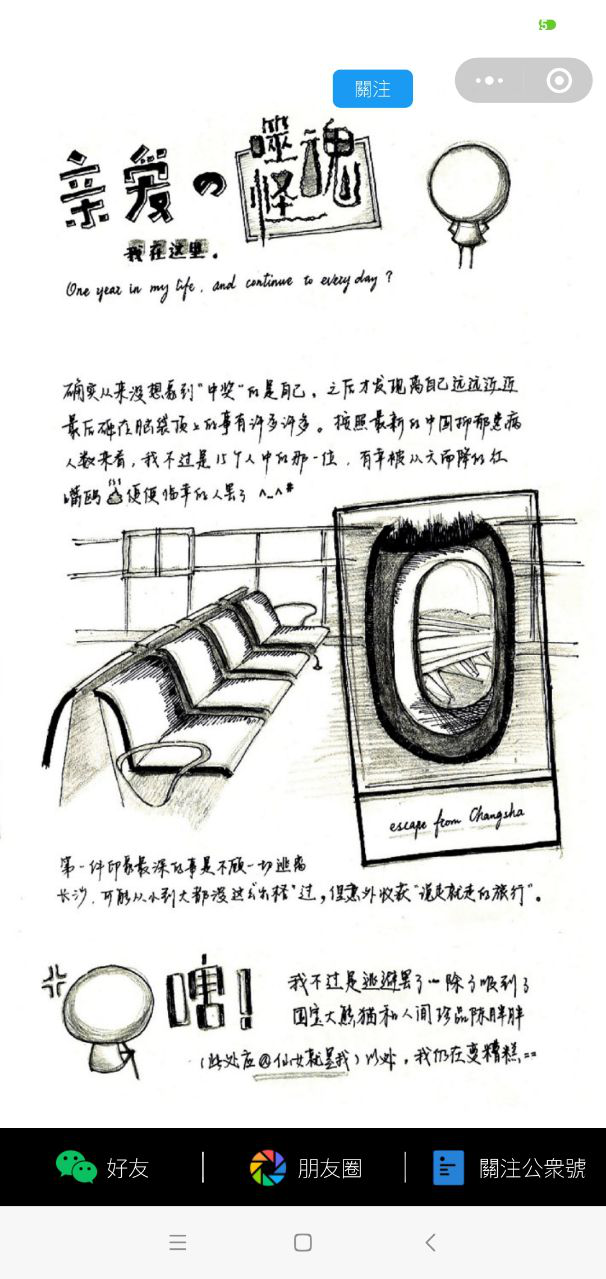 5
關注
亲爱の噬魂怪
我在这里。
One year in my life, and continue to every day ?
确实从来没想看到“中奖”的是自己。之后才发现离自己远远近近
最后砸在脑袋顶上的事有许多许多。按照最新的中国抑郁患病
人数来看，我不过是15个人中的那一位，有幸被从天而降的红
嘴鸥便便临幸的人罢了 ^_^#
escape from Changsha
第一件印象最深的事是不顾一切逃离
长沙，可能从小到大都没这么“出格”过，但意外收获“说走就走的旅行”。
嘻!
我不过是逃避罢了…除了吸到了
国宝大熊猫和人间珍品陈胖胖
(此处应@仙女就是我)以外，我仍在变糟糕==
好友
朋友圈
關注公眾號